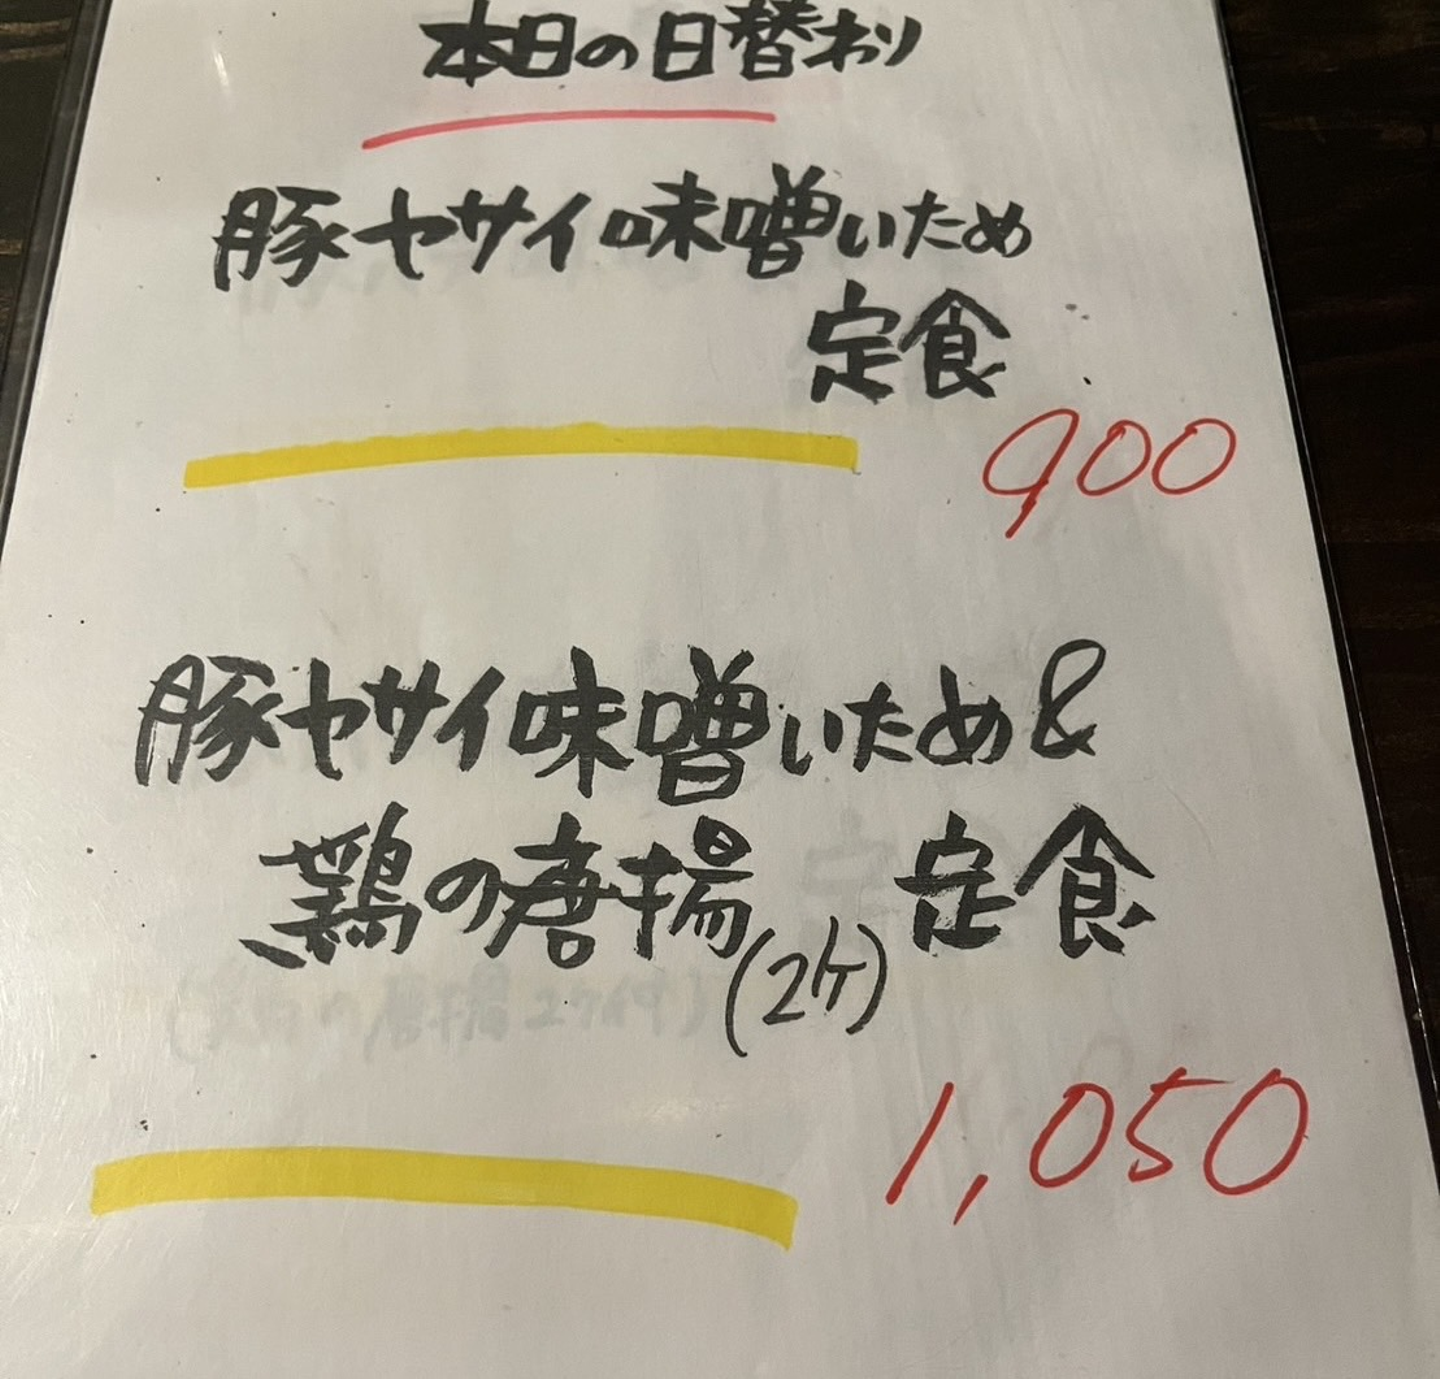 本日の日替わり
豚ヤサイ味噌いため
定食
900
豚ヤサイ味噌いため&
鶏の唐揚(2ケ) 定食
1,050